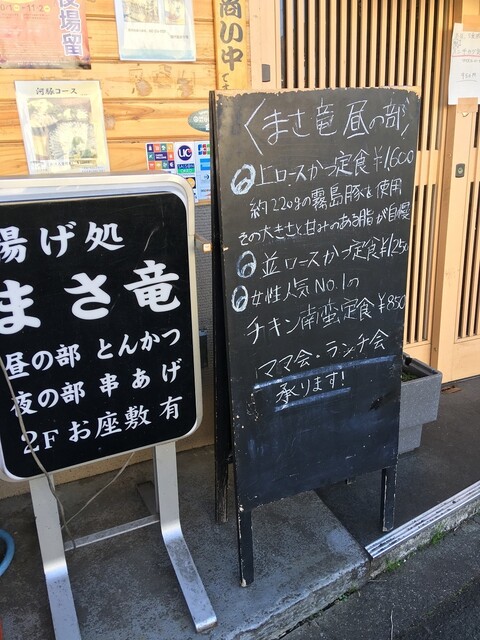 揚げ処
まさ竜
昼の部 とんかつ
夜の部 串あげ
2F お座敷 有
〈まさ竜 昼の部〉
上ロースかつ定食 ¥1,600
約220gの霧島豚を使用
その大きさと甘みのある脂が自慢
並ロースかつ定食 ¥1,250
女性人気 NO.1の
チキン南蛮定食 ¥850
ママ会・ランチ会
承ります!
河豚コース
商い中
UC